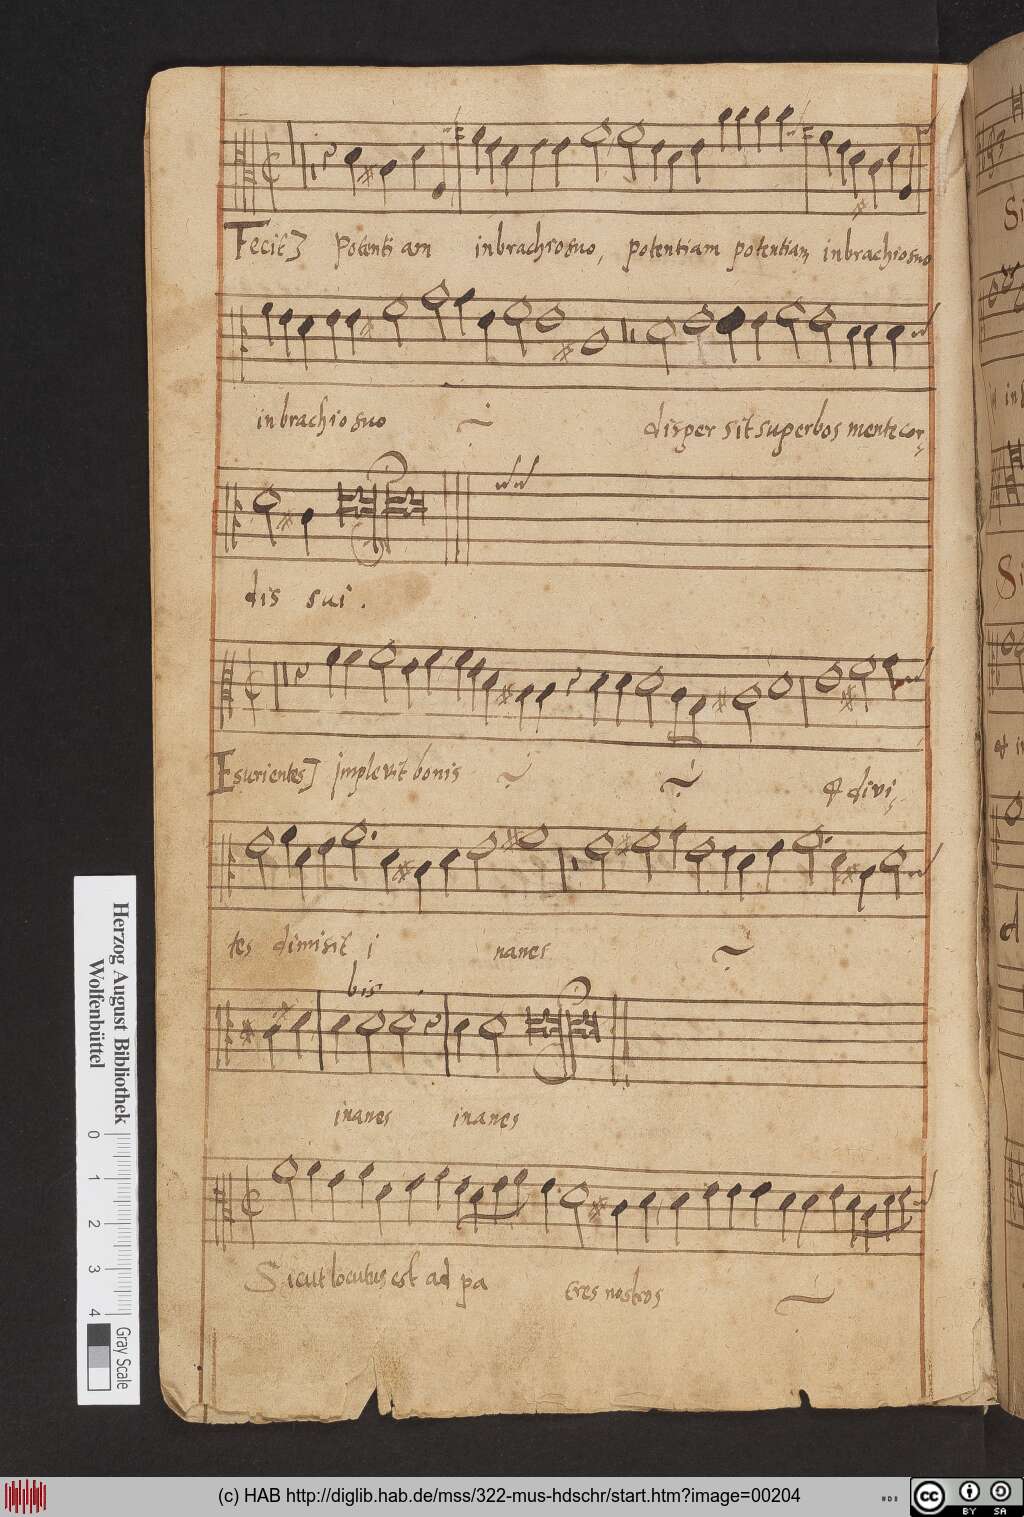 Fecit] Potenti am in brachio suo, potentiam potentiam in brachio suo
in brachio suo disper sit superbos mente cor-
dis sui.
Esurientes] implevit bonis & divi-
tes dimisit i nanes
bis.
inanes inanes
Sicut locutus est ad pa tres nostros
Herzog August Bibliothek
Wolfenbüttel
0 1 2 3 4
Gray Scale
(c) HAB http://diglib.hab.de/mss/322-mus-hdschr/start.htm?image=00204
cc BY SA